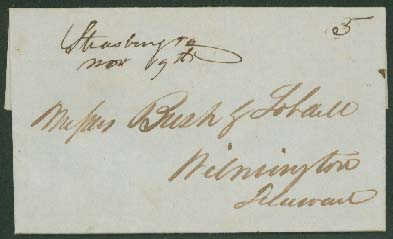 Strasburg Pa
Nov 19th
5
Messrs Bush & Lobdell
Wilmington
Delaware